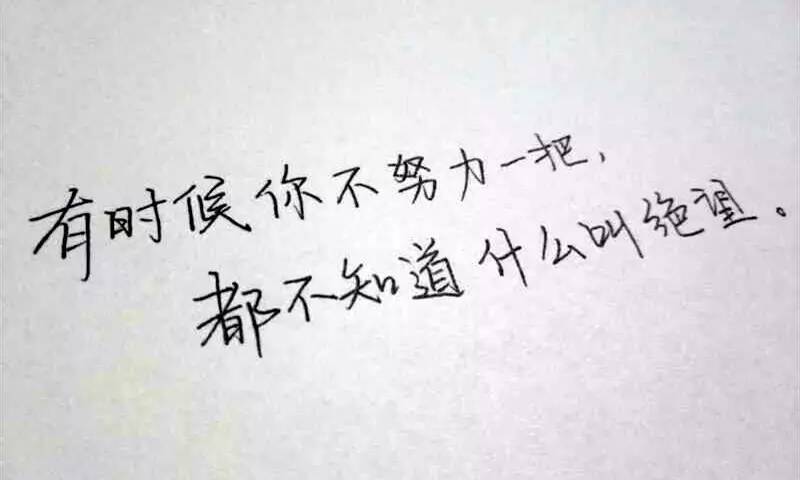 有时候你不努力一把，
都不知道什么叫绝望。